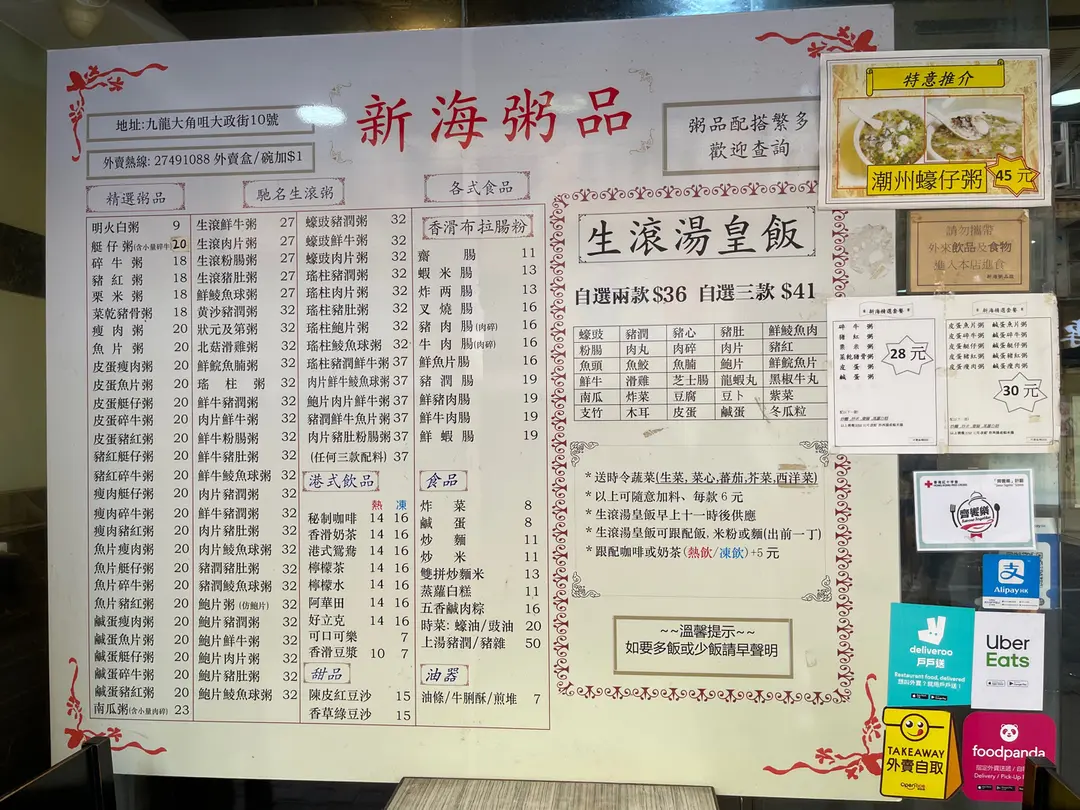 新海粥品
地址:九龍大角咀大政街10號
外賣熱線: 27491088 外賣盒/碗加$1
粥品配搭繁多
歡迎查詢
精選粥品
明火白粥 9
艇仔粥(含小量碎牛) 20
碎牛粥 18
豬紅粥 18
粟米粥 18
菜乾豬骨粥 18
瘦肉粥 20
魚片粥 20
皮蛋瘦肉粥 20
皮蛋魚片粥 20
皮蛋艇仔粥 20
皮蛋碎牛粥 20
皮蛋豬紅粥 20
豬紅艇仔粥 20
豬紅碎牛粥 20
瘦肉艇仔粥 20
瘦肉碎牛粥 20
瘦肉豬紅粥 20
魚片瘦肉粥 20
魚片艇仔粥 20
魚片碎牛粥 20
魚片豬紅粥 20
鹹蛋瘦肉粥 20
鹹蛋魚片粥 20
鹹蛋艇仔粥 20
鹹蛋碎牛粥 20
鹹蛋豬紅粥 20
南瓜粥(含小量肉碎) 23
馳名生滾粥
生滾鮮牛粥 27
生滾肉片粥 27
生滾粉腸粥 27
生滾豬肚粥 27
鮮鯪魚球粥 27
黃沙豬潤粥 32
狀元及第粥 32
北菇滑雞粥 32
鮮鯇魚腩粥 32
瑤柱粥 32
鮮牛豬潤粥 32
肉片鮮牛粥 32
鮮牛粉腸粥 32
鮮牛豬肚粥 32
鮮牛鯪魚球粥 32
肉片豬潤粥 32
鮮牛豬潤粥 32
肉片豬肚粥 32
肉片鯪魚球粥 32
豬潤豬肚粥 32
豬潤鯪魚球粥 32
鮑片粥(仿鮑片) 32
鮑片豬潤粥 32
鮑片鮮牛粥 32
鮑片肉片粥 32
鮑片豬肚粥 32
鮑片鯪魚球粥 32
蠔豉豬潤粥 32
蠔豉鮮牛粥 32
蠔豉肉片粥 32
瑤柱豬潤粥 32
瑤柱肉片粥 32
瑤柱豬肚粥 32
瑤柱鮑片粥 32
瑤柱鯪魚球粥 32
瑤柱豬潤鮮牛粥 37
肉片鮮牛鯪魚球粥 37
鮑片肉片鮮牛粥 37
豬潤鮮牛魚片粥 37
肉片豬肚粉腸粥 37
(任何三款配料) 37
港式飲品
熱 凍
秘制咖啡 14 16
香滑奶茶 14 16
港式鴛鴦 14 16
檸檬茶 14 16
檸檬水 14 16
阿華田 14 16
好立克 14 16
可口可樂 7
香滑豆漿 10 7
甜品
陳皮紅豆沙 15
香草綠豆沙 15
各式食品
香滑布拉腸粉
齋腸 11
蝦米腸 13
炸両腸 13
叉燒腸 16
豬肉腸(肉碎) 16
牛肉腸(肉碎) 16
鮮魚片腸 16
豬潤腸 19
鮮豬肉腸 19
鮮牛肉腸 19
鮮蝦腸 19
食品
炸菜 8
鹹蛋 8
炒麵 11
炒米 11
雙拼炒麵米 13
蒸蘿白糕 11
五香鹹肉粽 16
時菜: 蠔油/豉油 20
上湯豬潤/豬雜 50
油器
油條/牛脷酥/煎堆 7
生滾湯皇飯
自選兩款$36 自選三款$41
蠔豉 豬潤 豬心 豬肚 鮮鯪魚肉
粉腸 肉丸 肉碎 肉片 豬紅
魚頭 魚鮫 魚腩 鮑片 鮮鯇魚片
鮮牛 滑雞 芝士腸 龍蝦丸 黑椒牛丸
南瓜 炸菜 豆腐 豆卜 紫菜
支竹 木耳 皮蛋 鹹蛋 冬瓜粒
*送時令蔬菜(生菜, 菜心, 蕃茄, 芥菜, 西洋菜)
*以上可隨意加料、每款 6 元
*生滾湯皇飯早上十一時後供應
*生滾湯皇飯可跟配飯, 米粉或麵(出前一丁)
*跟配咖啡或奶茶(熱飲/凍飲)+5 元
~~溫馨提示~~
如要多飯或少飯請早聲明
特意推介
潮州蠔仔粥 45 元
請勿攜帶
外來飲品及食物
進入本店進食
新海精選套餐
碎牛粥
豬紅粥
粟米粥
菜乾豬骨粥
皮蛋粥
鹹蛋粥
28 元
新海精選套餐
皮蛋魚片粥 鹹蛋魚片粥
皮蛋碎牛粥 鹹蛋碎牛粥
皮蛋艇仔粥 鹹蛋艇仔粥
皮蛋豬紅粥 鹹蛋豬紅粥
皮蛋瘦肉粥 鹹蛋瘦肉粥
30 元
齊饗樂
支
Alipay HK
deliveroo
戶戶送
Restaurant food, delivered
Uber
Eats
TAKEAWAY
外賣自取
OpenRice
foodpanda
Delivery / Pick-Up